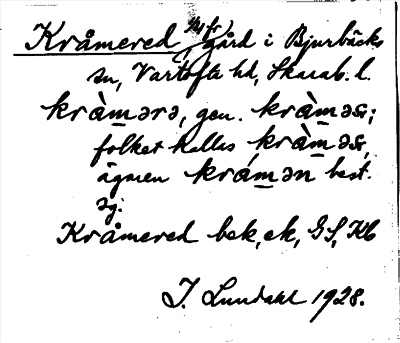 Kråmered 14 fr gård i Bjurbäcks
sn, Vartofta hd, Skarab. l.
kràm̲ərə, gen. kràm̲əs;
folket kallas kràm̲əs,
ägaren krám̲ən best.
sg.
Kråmered bek, ek, GS, Kb
J. Lundahl 1928.